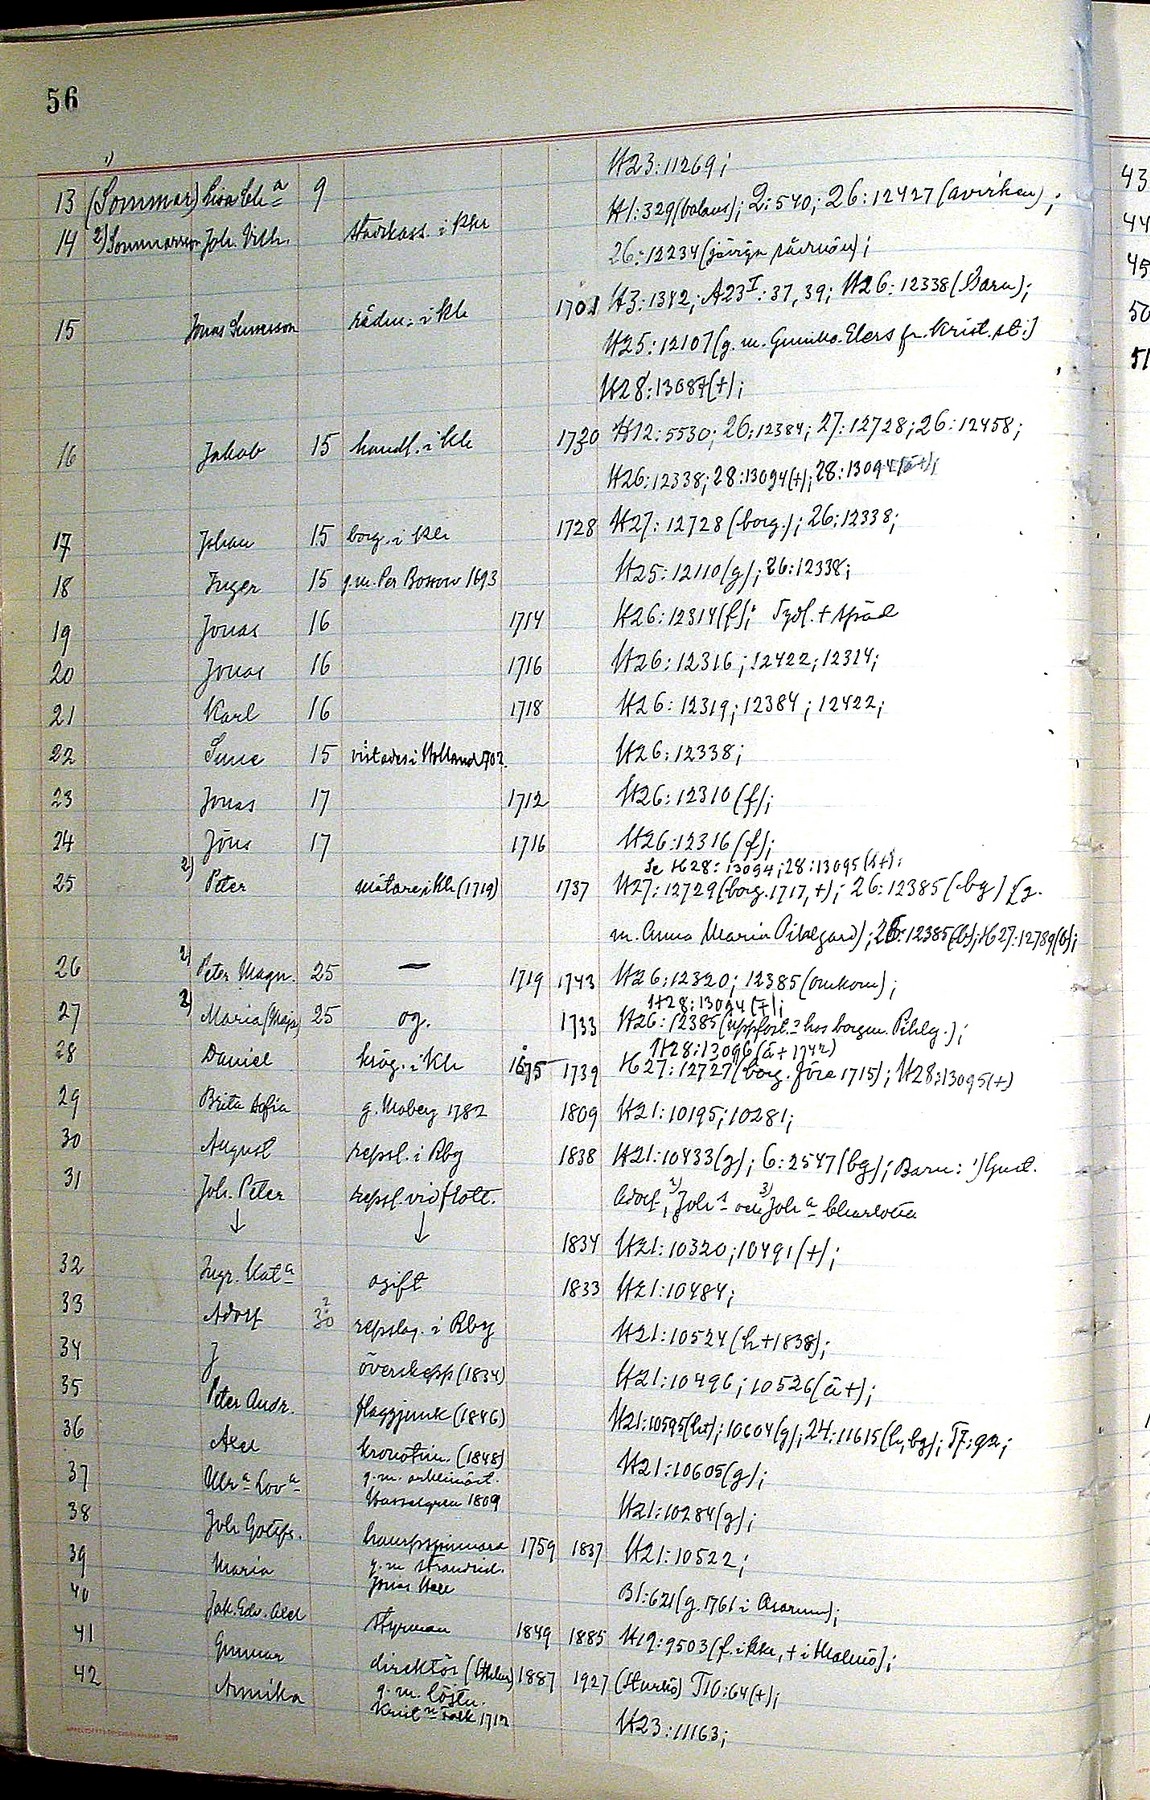 56
1)
13 (Sommar) Lisa Ch a 9 H23:11269;
14 2) Sommar Joh. Vilh. i Khr H1:329(balans); 2:540; 26:12427 (avvikan);
26:12234 (
15 Jonas Suneson rådm. i Khr 1701 H3:1382; A23 I:37, 39; H26:12338 (Barn);
H25:12107 (g.m. Gunilla Elers fr. Krist.st.)
H28:13087(+);
16 Jakob 15 handl. i Khr 1720 H12:5530; 26:12384; 27:12728; 26:12458;
H26:12338; 28:13094(+); 28:13094(ä+);
17 Johan 15 borg. i Khr 1728 H27:12728 (borg.); 26:12338;
18 Inger 15 g.m. Per Bossow 1693 H25:12110(g); 26:12338;
19 Jonas 16 1714 H26:12314(f); Tydl. + späd
20 Jonas 16 1716 H26:12316; 12422; 12314;
21 Karl 16 1718 H26:12319; 12384; 12422;
22 Sune 15 vistades i Holland 1702. H26:12338;
23 Jonas 17 1712 H26:12310 (f);
24 Jöns 17 1716 H26:12316 (f);
Se H28:13094; 28:13095(ä+);
25 2) Peter mätare i Khr (1719) 1737 H27:12729 (borg. 1717, +); 26:12385 (bg) (g.
m. Anna Maria Pihlgard); 26:12385(b); H27:12789(b);
26 2) Peter Magn. 25 — 1719 1743 H26:12320; 12385 (omkom);
H28:13094(+);
27 2) Maria (Maja) 25 og. 1733 H26:12385 (uppfost. hos borgm. Pihlg.);
H28:13096 (ä+ 1742)
28 Daniel krög. i Khr 1675 1739 H27:12727 (borg. före 1715); H28:13095(+)
29 Brita Sofia g. Moberg 1782 1809 H21:10195; 10281;
30 August repsl. i Rbg 1838 H21:10433(g); 6:2547(bg); Barn: 1) Gust.
31 Joh. Peter repsl. vid flott. Adolf, 2) Joh. och 3) Joh a Charlotta
↓ ↓ 1834 H21:10320; 10491(+);
32 Ingr. Kat a ogift 1833 H21:10484;
33 Adolf 30 2 repslag. i Rbg H21:10524 (h+1838);
34 J överskepp (1834) H21:10496; 10526(ä+);
35 Peter Andr. flaggjunk (1846) H21:10595(h+); 10604(g); 24:11615(h, bg);
36 Axel kronotim. (1848) H21:10605(g);
37 Ulr a Lov a g.m. arklimäst. Hasselgren 1809 H21:10284(g);
38 Joh Gottfr. hampspinnare 1759 1837 H21:10522;
39 Maria g.m. strandrid. Jonas Hall B1:621 (g. 1761 i Asarum);
40 Jak. Edv. Axel styrman 1849 1885 H19:9503 (f. i Khr, + i Malmö);
41 Gunnar direktör (Sthlm) 1887 1927 (Sturkö) T10:64(+);
42 Annika g.m. löjtn. Falk 1712 H23:11163;
43
44
45
50
51